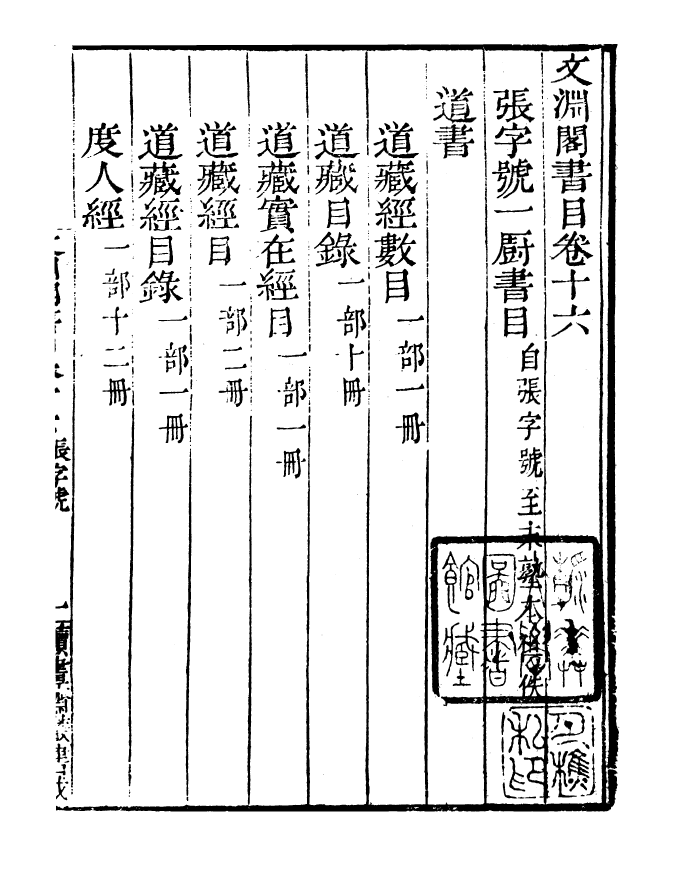 文淵閣書目卷十六
張字號一厨書目自張字號至末塾本
道書
道藏經數目一部一冊
道藏目錄一部十冊
道藏實在經目一部一冊
道藏經目一部二冊
道藏經目錄一部一冊
度人經一部十二冊
張字號
一
讀畫齋
圖書
館藏